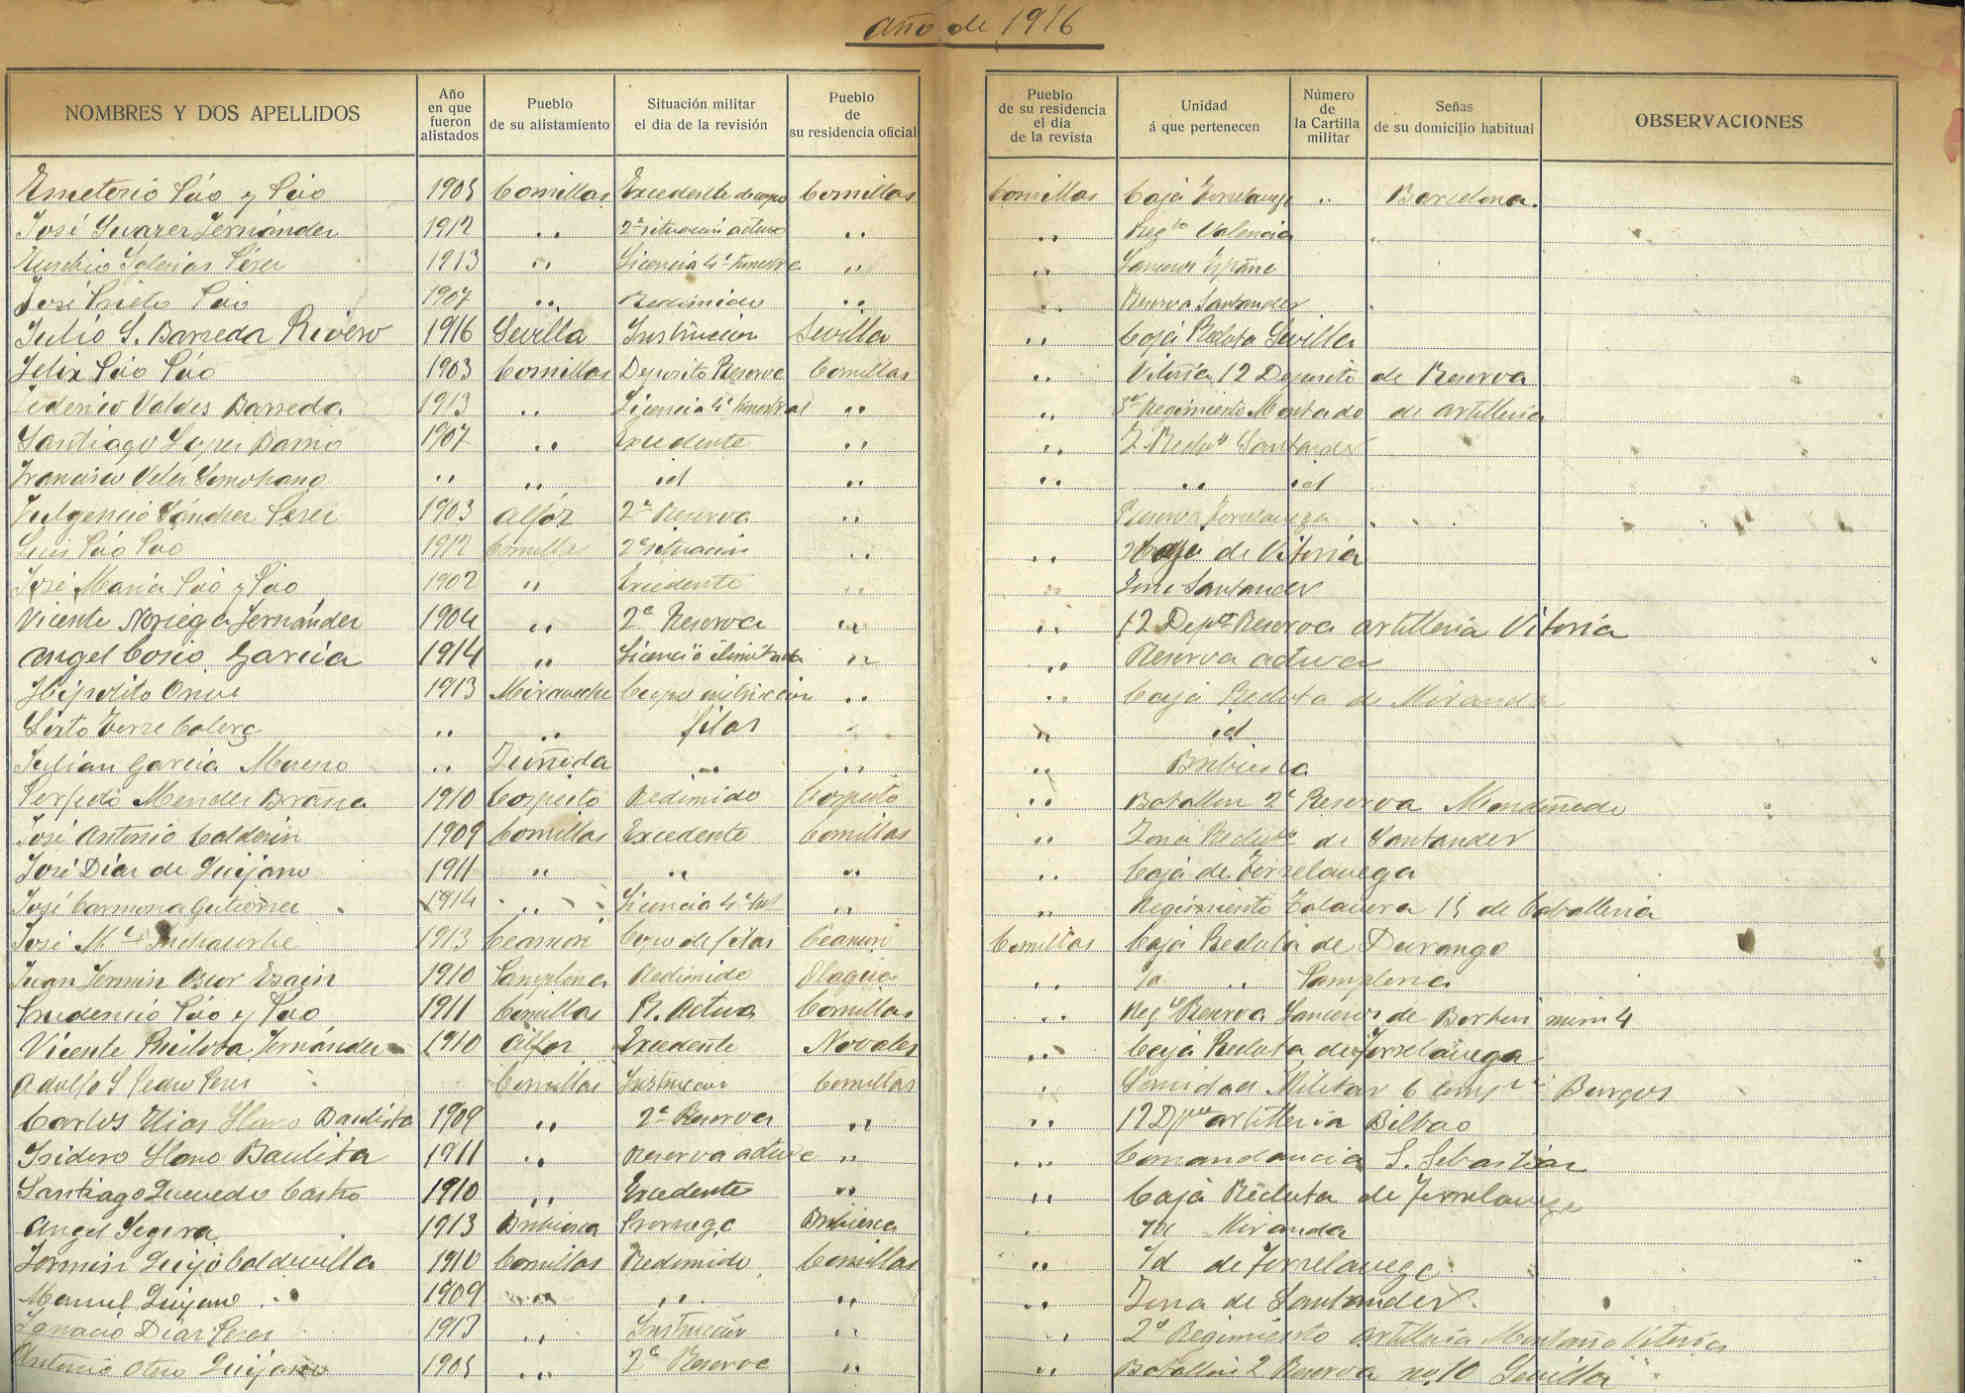 Año de 1916
NOMBRES Y DOS APELLIDOS | Año en que fueron alistados | Pueblo de su alistamiento | Situación militar el dia de la revisión | Pueblo de su residencia oficial | Pueblo de su residencia el dia de la revista | Unidad á que pertenecen | Número de la Cartilla militar | Señas de su domicilio habitual | OBSERVACIONES
Emeterio Pío y Pío 1905 Comillas Excedente de cupo Comillas Comillas Caja Torrelavega " Barcelona.
José Suarez Fernández 1912 " 2ª situación activa " " Regto Valencia
Eusebio Iglesias Pérez 1913 " Licencia 4º trimestre " " Lanceros España
José Prieto Pío 1907 " Redimido " " Reserva Santander
Julio S. Barreda Rivero 1916 Sevilla Instrucion Sevilla " Caja Recluta Sevilla
Felix Pío Pío 1903 Comillas Deposito Reserva Comillas " Vitoria 12 Deposito de Reserva
Federico Valdes Barreda 1913 " Licencia 4º trimestral " " 3er Regimiento Montado de artilleria
Santiago Lopez Barrio 1907 " Excedente " " Z. Recluto Santander
Francisco Velez " " id " " " id
Fulgencio Sánchez Perez 1903 Alfóz 2ª Reserva " Reserva Torrelavega
Luis Pío Pío 1912 Comillas 2ª situación " " Caja de Vitoria
José Maria Pío y Pío 1902 " Excedente " " Zona Santander
Vicente Noriega Fernández 1904 " 2ª Reserva " " 12 Depto Reserva artilleria Vitoria
Angel Cosio Garcia 1914 " Licencia ilimitada " " Reserva activa
Hipolito 1913 Miraveche Cupo instrucción " " Caja Recluta de Miranda
Sixto Torre " " filas " " id
Julian Garcia Moreno " Zuñeda " " " Briviesca
Perfecto Mendez Braña 1910 Cospeito Redimido Cospeito " Batallon 2ª Reserva Mondoñedo
José Antonio Calderón 1909 Comillas Excedente Comillas " Zona Reclto de Santander
José Díaz de Quijano 1911 " " " " Caja de Torrelavega
José Carmona Gutierrez 1914 " Licencia 4º " " Regimiento Talavera 15 de Caballeria
José Mª 1913 Ceanuri Cupo de filas Ceanuri Comillas Caja Recluta de Durango
Juan Fermin 1910 Pamplona Redimido Olague " Id. " Pamplona
Prudencio Pío y Pío 1911 Comillas R. Activa Comillas " Regto Reserva Lanceros de Borbón num 4
Vicente Ruiloba Fernández 1910 Alfoz Excedente Novales " Caja Recluta de Torrelavega
Adolfo S Pedro Perez Comillas Instrucion Comillas " Sanidad Militar 6 compª Burgos
Carlos Elias Haro Bautista 1909 " 2ª Reserva " " 12 Dpto artilleria Bilbao
Isidero Haro Bautista 1911 " Reserva activa " " Comandancia S. Sebastian
Santiago Quevedo Castro 1910 " Excedente " " Caja Recluta de Torrelavega
Angel Segura 1913 Briviesca Prorroga Briviesca " Id Miranda
Fermin Quijo Caldevilla 1910 Comillas Redimido Comillas " Id de Torrelavega
Manuel Quijano 1909 " " " " Zona de Santander
Ignacio Diaz Perez 1913 " Instrucion " " 2º Regimiento Artilleria Montaña Vitoria
Antonio Otero Quijano 1905 " 2ª Reserva " " Batallon 2 Reserva no. 10 Sevilla